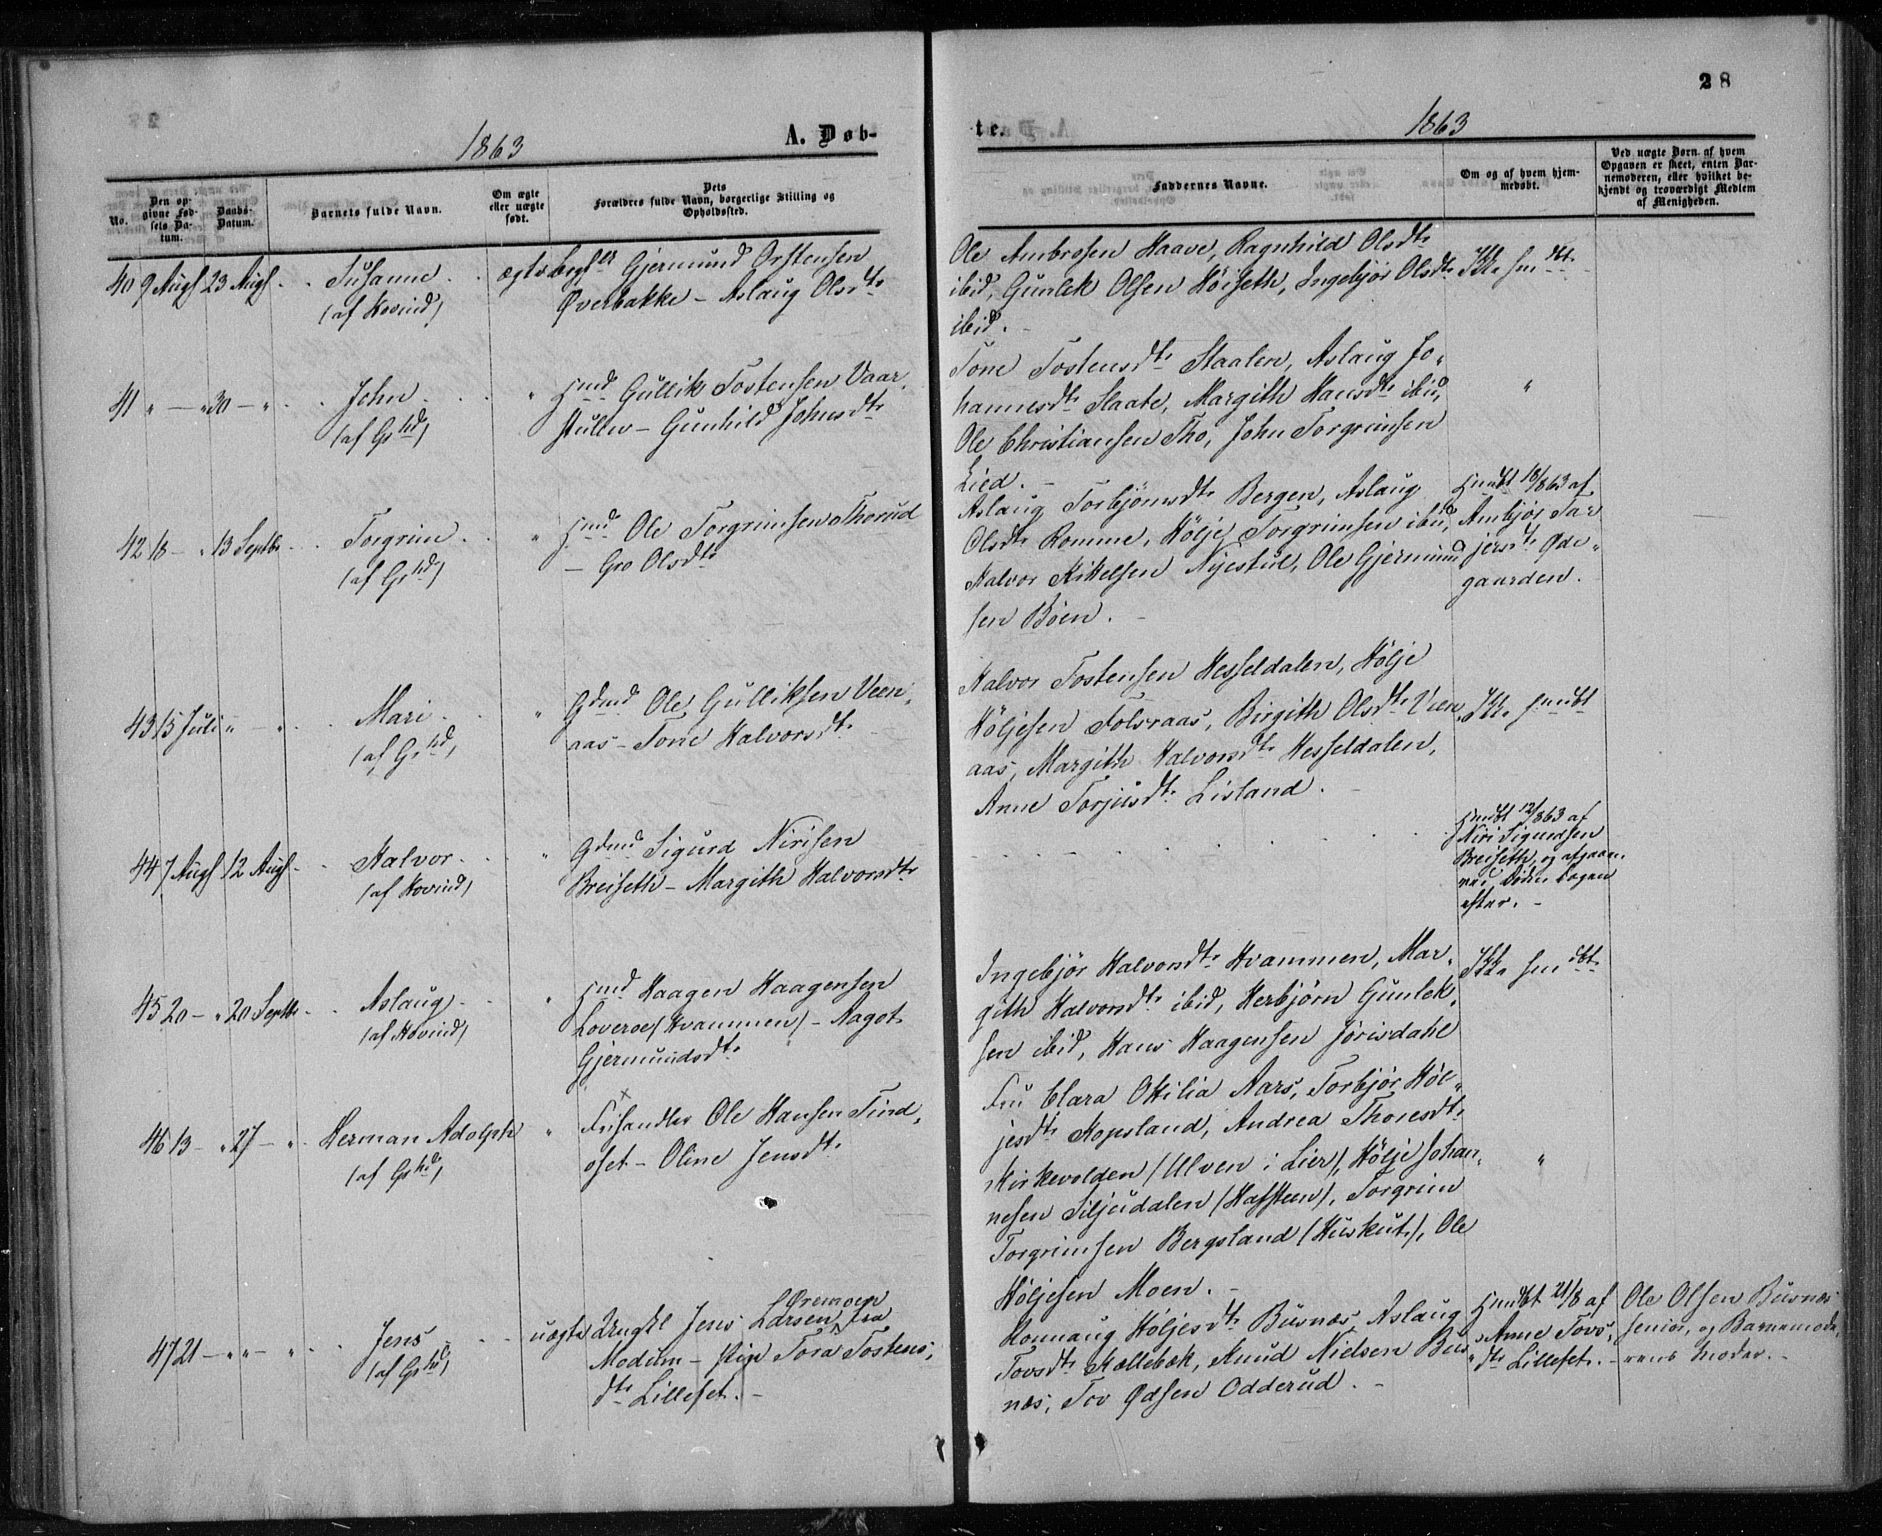 28
1863
A. Døb-
te.
1863
No.
Den op-
givne Fød-
sels Da-
tum.
Daabs-
Datum.
Barnets fulde Navn.
Om ægte
eller uægte
født.
Dets
Forældres fulde Navn, borgerlige Stilling og
Opholdssted.
Faddernes Navne.
Om og af hvem hjem-
medøbt.
Ved uægte Børn af hvem
Opgaven er skeet, enten Bar-
nemoderen, eller hvilket be-
kjendt og troværdigt Medlem
af Menigheden.
40 9 Augs 23 Augs Susanne
(af Hovind)
ægte Gjermund Orstensen
Øverbakke - Aslaug Olsdtr
Ole Ambrosen Haave, Ragnhild Olsdtr
ibid, Gunlek Olsen Höiseth, Ingebjör Olsdtr
ibid. -
Ikke hmdbt
41 " - " 30 - " John
(af Grhd)
" Hmd Gullik Tostensen Vaar-
stullen - Gunhild Johnsdtr
Tone Tostensdtr Staalen, Aslaug Jo-
hannesdtr Slaate, Margith Hansdtr ibid,
Ole Christiansen Tho, John Torgrimsen
Lied. -
"
42 18 - " 13 Septbr Torgrim
(af Grhd)
" Hmd Ole Torgrimsen Thorud
- Gro Olsdtr
Aslaug Torbjörnsdtr Bergen, Aslaug
Olsdtr Romme, Hölje Torgrimsen ibid,
Halvor Kikelsen Nyestul, Ole Gjermund
sen Böen. -
Hmdbt 18/8 63 af
Ambjör Tar-
jersdtr Øde-
gaarden.
43 15 Juli " - " Mari
(af Grhd)
" Gdmd Ole Gulliksen Veen-
aas - Tone Halvorsdtr
Halvor Tostensen Hesseldalen, Hölje
Höljesen Folsraas, Birgith Olsdtr Veen
aas, Margith Halvorsdtr Hesseldalen,
Anne Torjusdtr Lisland. -
Ikke hmdbt
44 7 Augs 12 Augs Halvor
(af Hovind)
" Gdmd Sigurd Nirisen
Breiseth - Margith Halvorsdtr
Hmdbt 12/8 63 af
Niri Sigurdsen
Breiseth, og afgaaen
ved Döden dagen
efter. -
45 20 - " 20 Septbr Aslaug
(af Hovind)
" Hmd Haagen Haagensen
Loveroe (Kvammen) - Aagot
Gjermundsdtr
Ingebjör Halvorsdtr Kvammen, Mar-
gith Halvorsdtr ibid, Herbjörn Gunlek-
sen ibid, Hans Haagensen Jörisdahl
Ikke hmdbt
46 13 - " 27 - " Herman Adolph
(af Grhd)
" Ole Hansen Tind-
oset - Oline Jensdtr
Fru Clara Otilia Aars, Torbjör Höl-
jesdtr Kopsland, Andrea Thoresdtr
Kirkevolden (Ulven i Lier), Hölje Johan-
nesen Siljudalen (Hafsteen), Torgrim
Torgrimsen Bergsland (Huskut), Ole
Höljesen Moen. -
"
47 21 - " " - " Jens
(af Grhd)
uægte Ungkl Jens Larsen Øremoen fra
Modum - pige Tora Tostens-
dtr Lilleset. -
Ronnaug Höljesdtr Busnæs, Aslaug
Tovsdtr Kallebæk, Knud Nielsen Bus-
næs, Tov Ødsen Odderud. -
Hmdbt 21/8 af
Anne Tovs-
dtr Lilleset. -
Ole Olsen Busnæs
senior, og Barnemode-
rens Moder. -